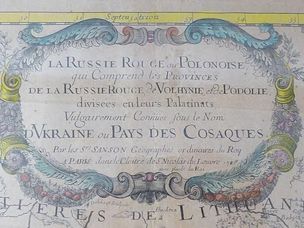 Septentrion
LA RUSSIE ROUGE ou POLONOISE
qui Comprend les Provinces
DE LA RUSSIE ROUGE, de VOLHYNIE, et de PODOLIE
divisées en leurs Palatinats
Vulgairement Connues sous le Nom
D'VKRAINE ou PAYS DES COSAQUES
Par les Srs. SANSON Geographes ordinaires du Roy
A PARIS dans le Cloitre de St. Nicolas du Louvre
avec privil. du Roi
TIERES DE LITHUAN